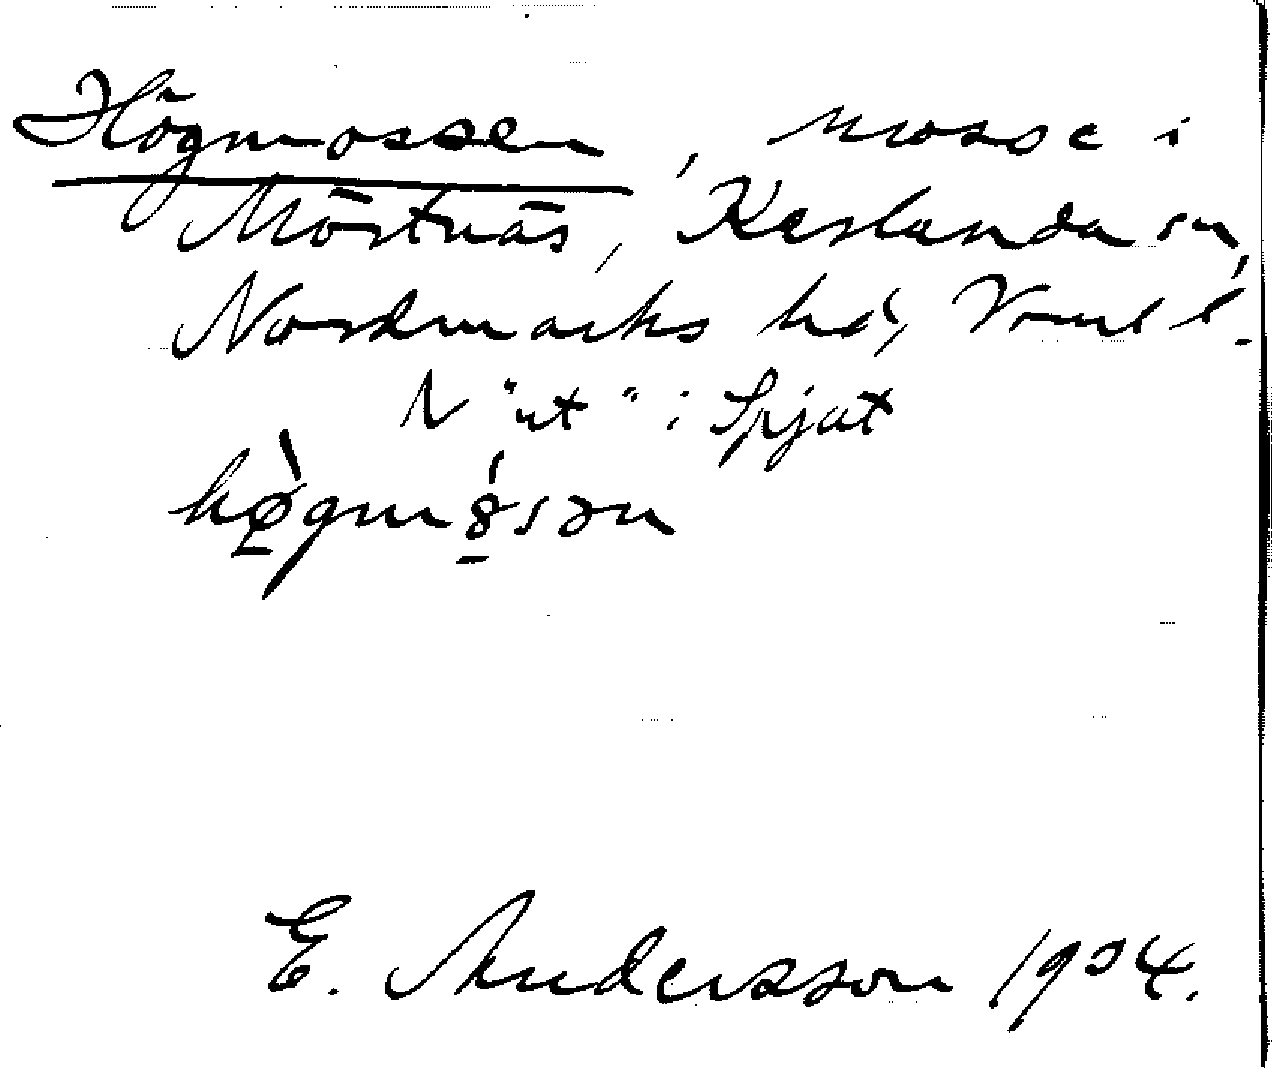 Högmossen, mosse i
Mörtnäs, Karlanda sn,
Nordmarks hd, Vrml l.
N "ut" i Spjut
hø̱̀gmó̱sən
E. Andersson 1904.